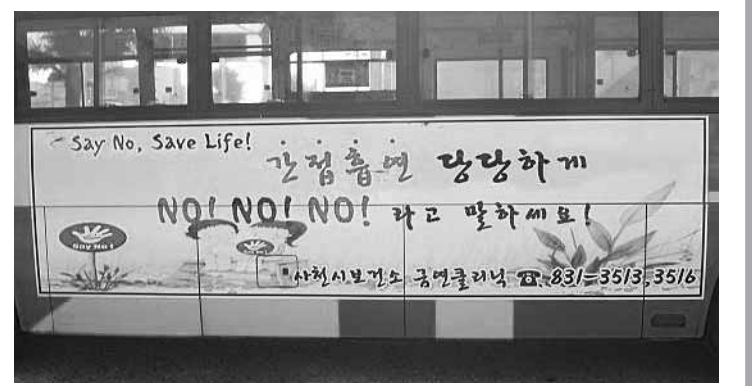 Say No, Save Life!
간접흡연 당당하게
NO! NO! NO! 라고 말하세요!
Say No!
사천시보건소 금연클리닉 ☎ 831-3513, 3516